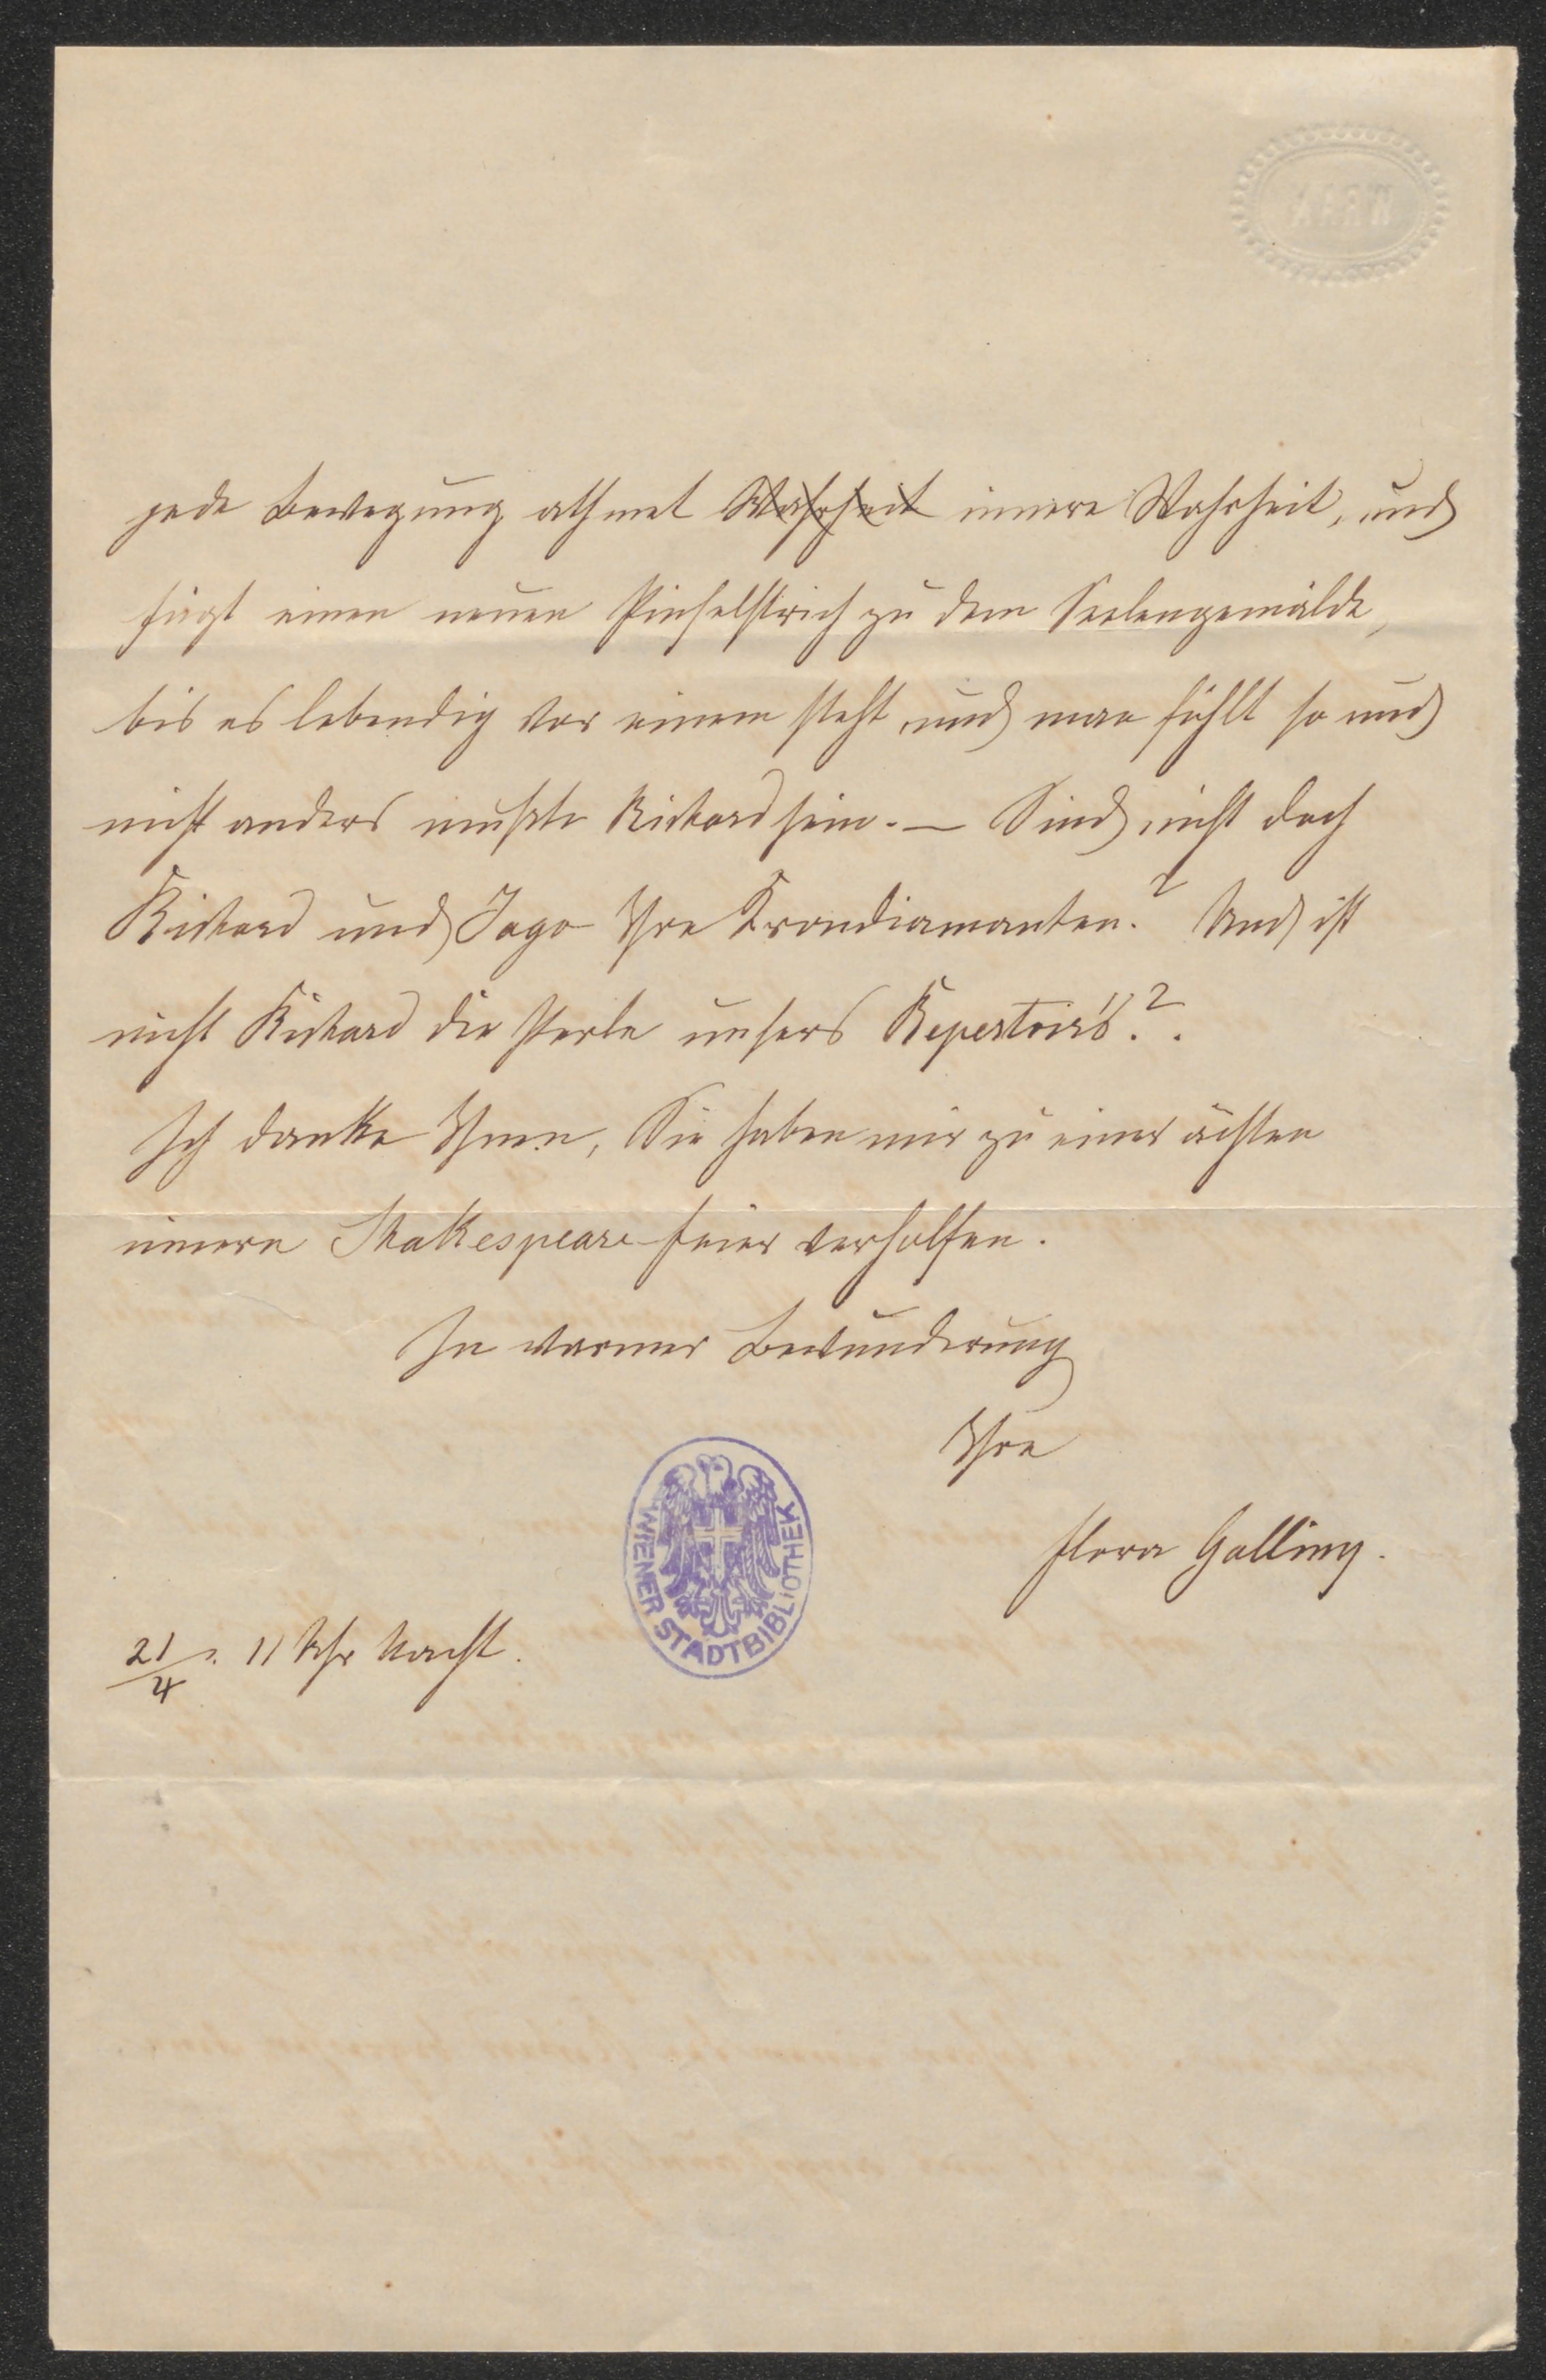 jede Bewegung athmet Wahrheit innere Wahrheit, und
fügt einen neuen Pinselstrich zu dem Seelengemälde,
bis es lebendig vor einem steht, und man fühlt so und
nicht anders mußte Richard sein. — Sind nicht doch
Richard und Jago Ihre Krondiamanten? Und ist
nicht Richard die Perle unsers Repertoir's??.
Ich danke Ihnen, Sie haben mir zu einer ächten
innern Shakespeare-feier verholfen.
In warmer Bewunderung
Ihre
Flora Galliny.
21/4. 11 Uhr Nacht.
WIENER STADTBIBLIOTHEK